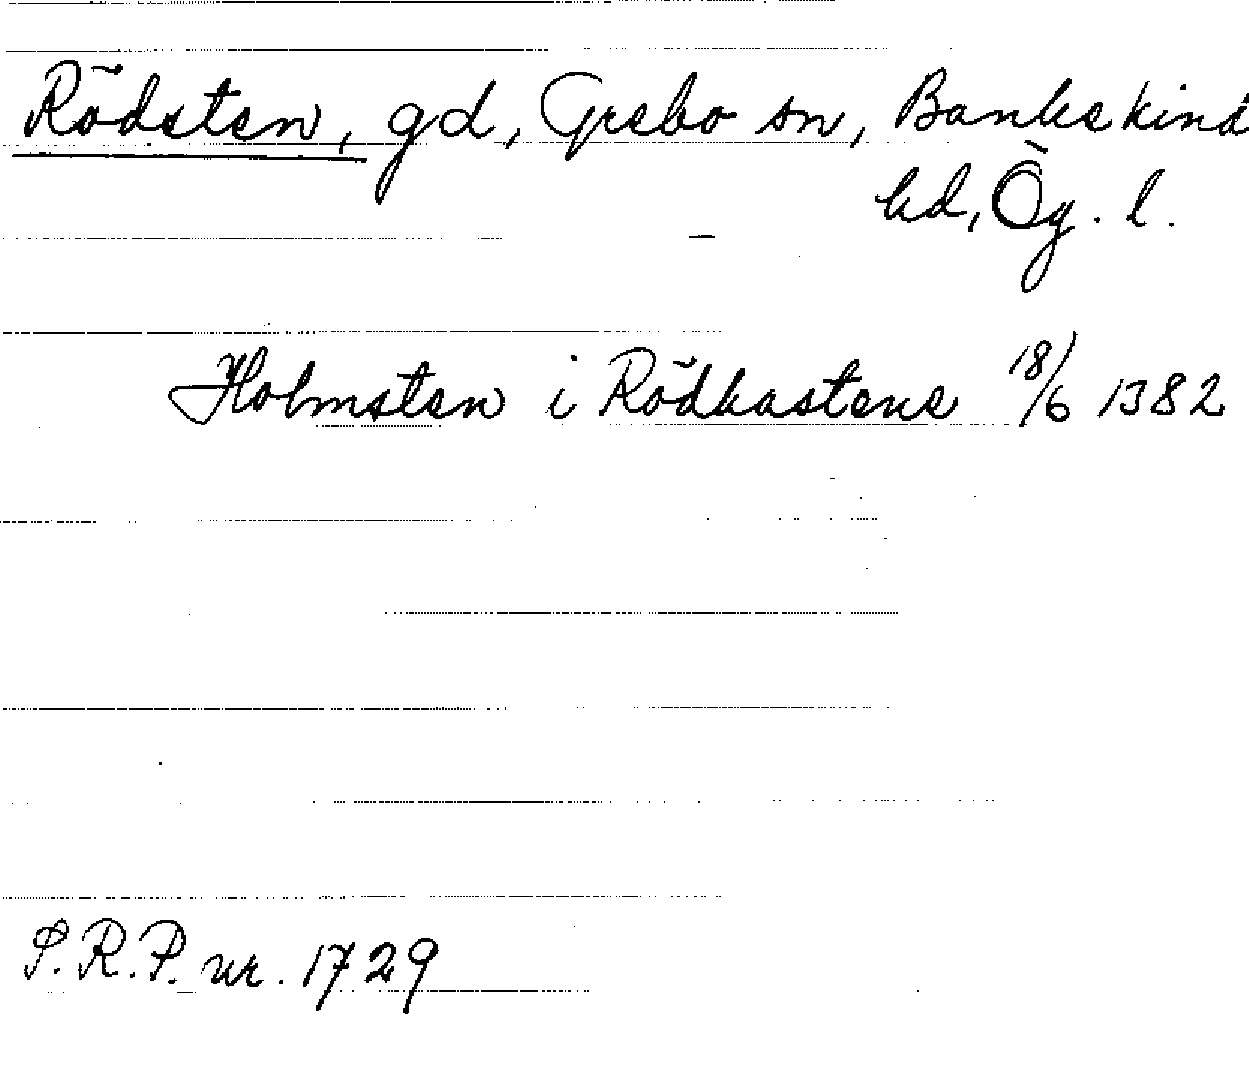 Rödsten, gd, Grebo sn, Bankekind
hd, Ög. l.
Holmsten i Rödhastene 18/6 1382
S.R.P. nr. 1729